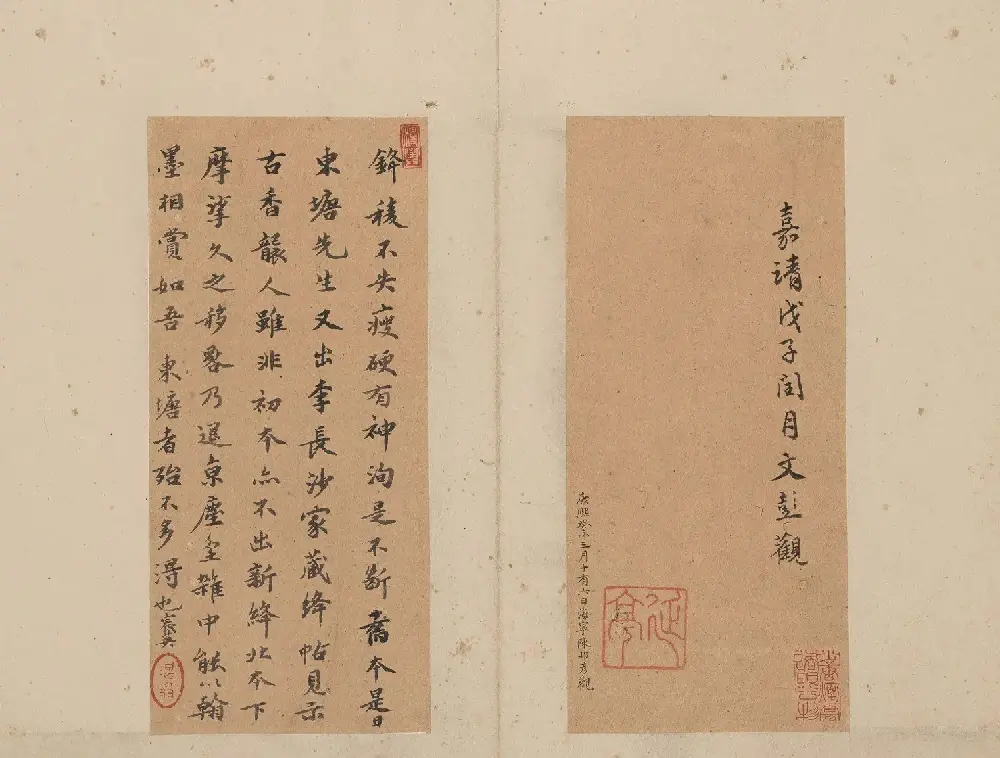 嘉靖戊子閏月文彭觀
康熙癸三月十有六日海寧陳邦彥觀
鋒稜不失瘦硬有神洵是不斷舊本是日
東塘先生又出李長沙家藏絳帖見示
古香襲人雖非初本亦不出新絳北本下
摩挲久之移晷乃退京塵坌雜中能以翰
墨相賞如吾東塘者殆不多得也宸英